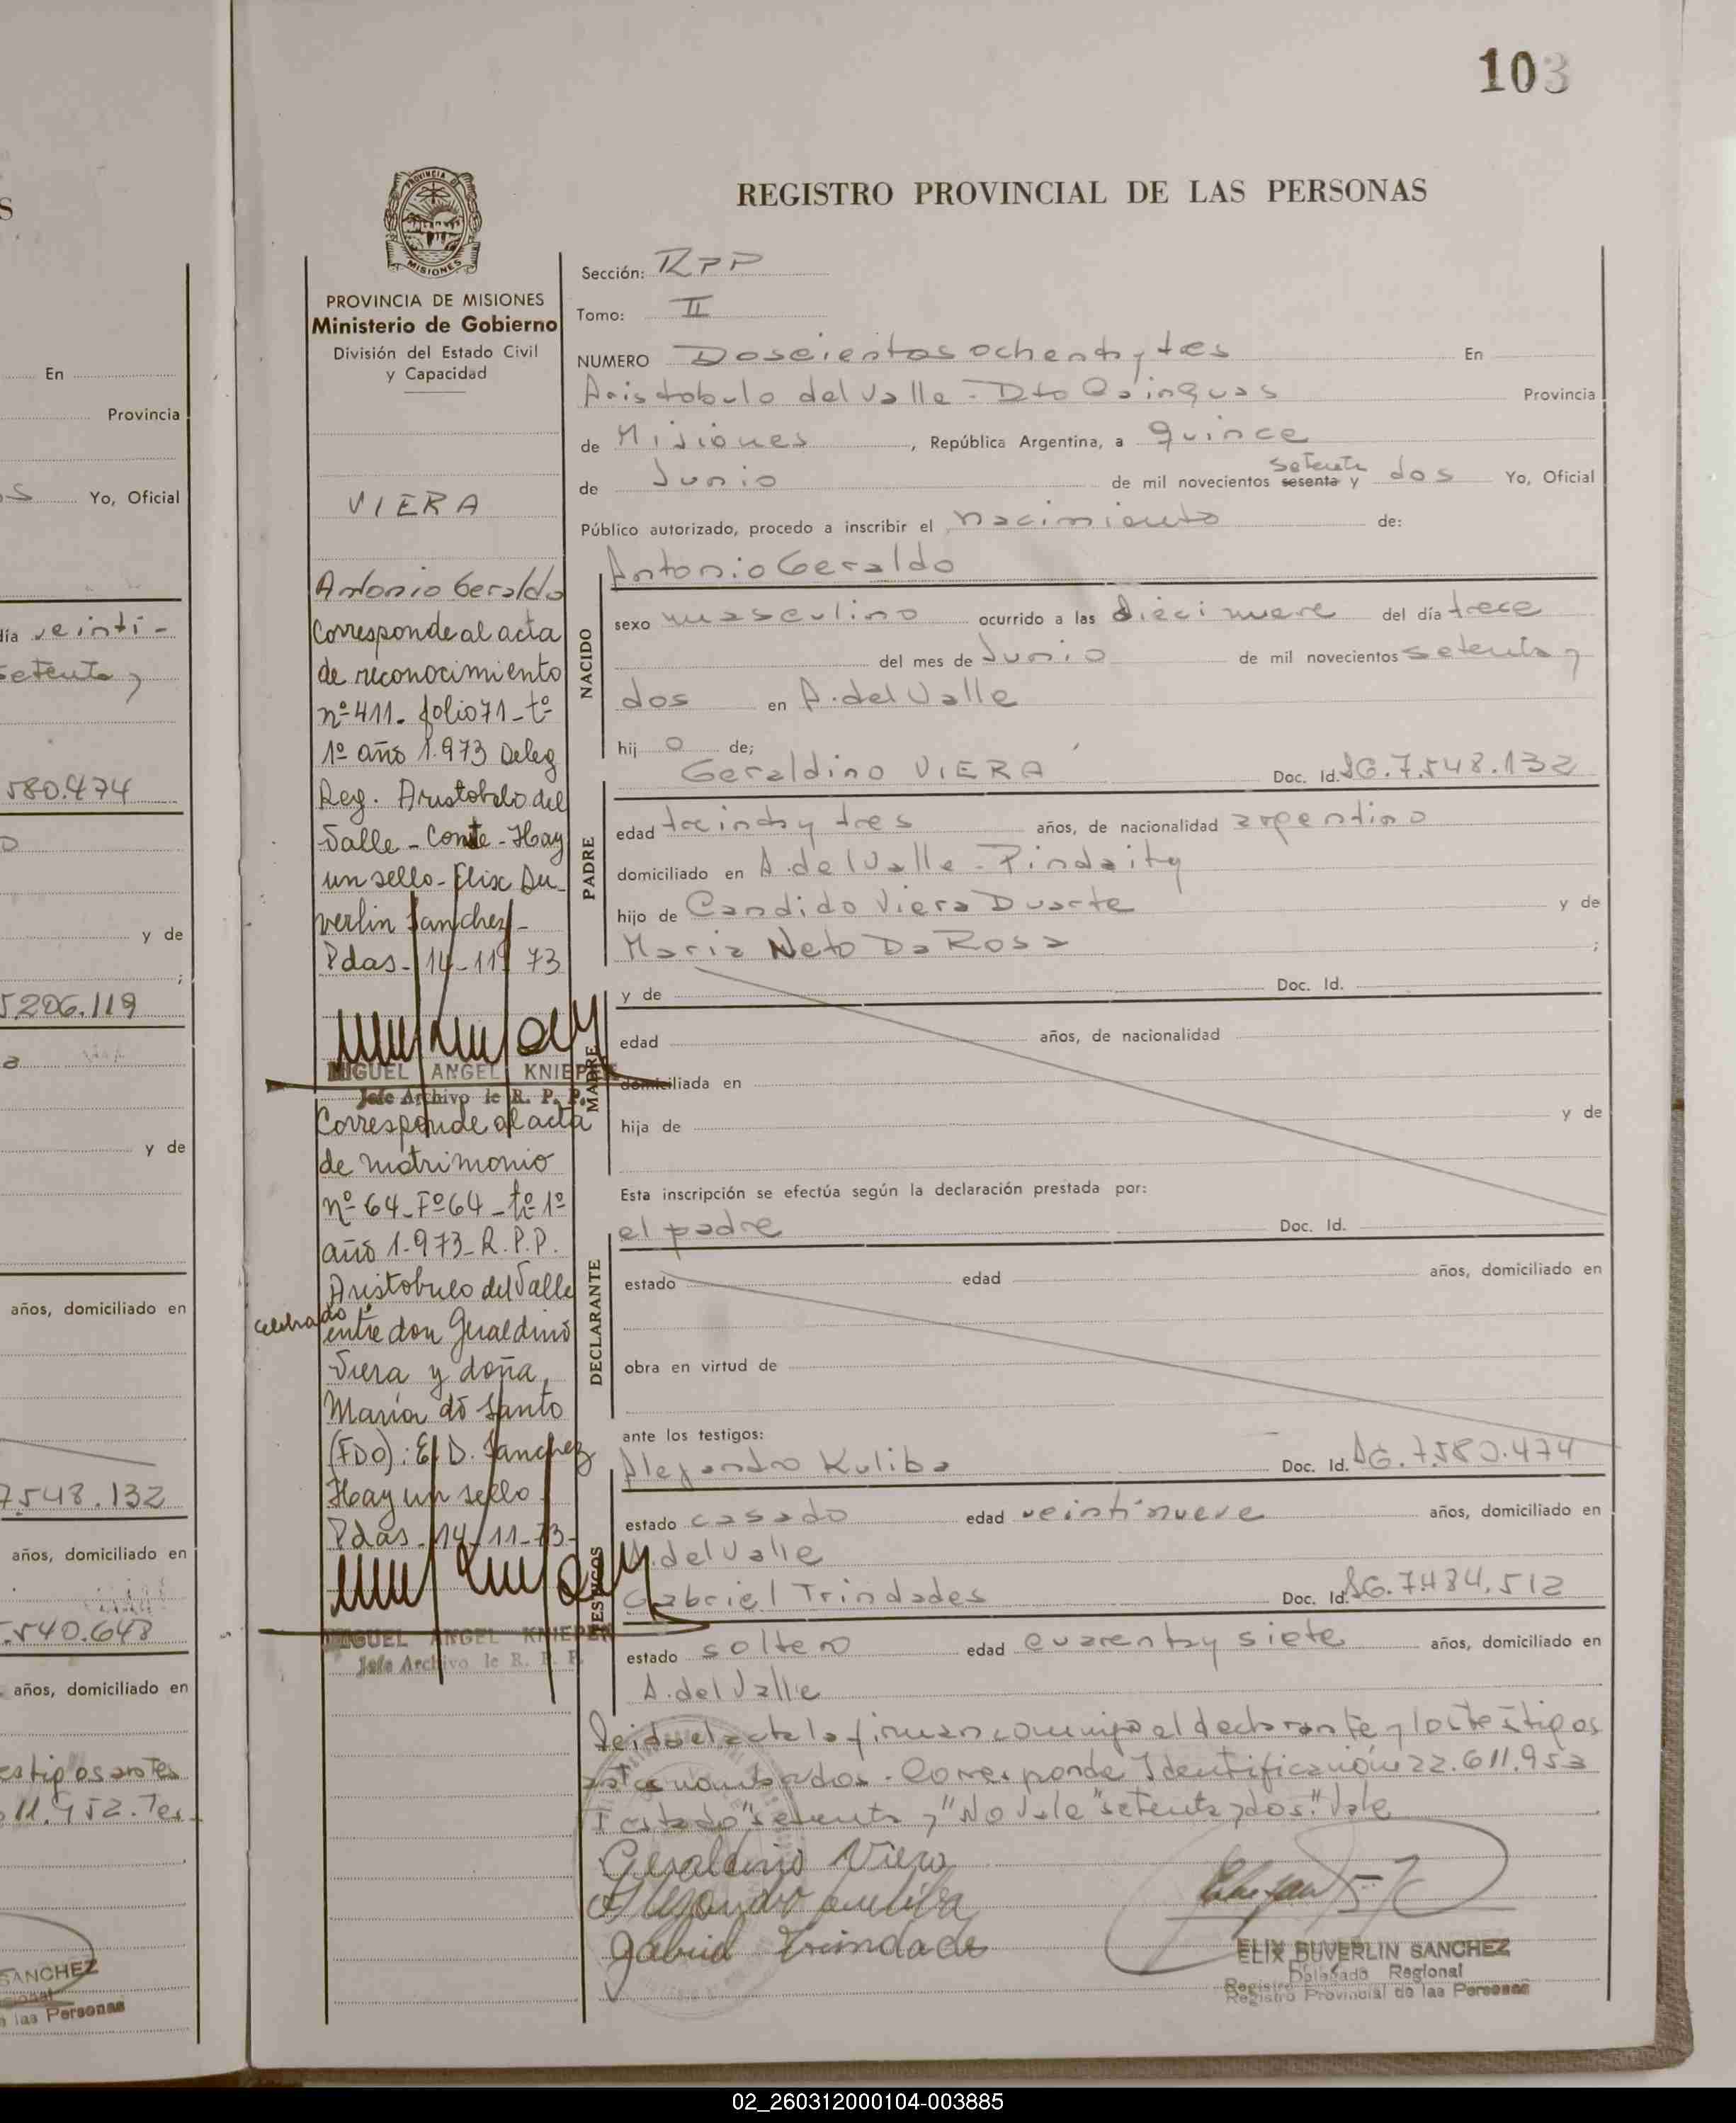 103
REGISTRO PROVINCIAL DE LAS PERSONAS
MISIONES
PROVINCIA DE MISIONES
Ministerio de Gobierno
División del Estado Civil
y Capacidad
VIERA
Antonio Geraldo
Corresponde al acta
de reconocimiento
nº 411. folio 71 - tº
1º año 1.973 Deleg
Reg. Aristobulo del
Valle - Conste - Hay
un sello - Elix Du-
verlin Sanchez -
Pdas - 14 - 11 73
MIGUEL ANGEL KNIEPER
Jefe Archivo de R. P. P.
Corresponde al acta
de matrimonio
nº 64 - Fº 64 - tº 1º
año 1.973 - R. P. P.
Aristobulo del Valle
celebrado
entre don Geraldino
Viera y doña
María do Santo
(FDO): E. D. Sanchez
Hay un sello
Pdas - 14 - 11 - 73 -
MIGUEL ANGEL KNIEPER
Jefe Archivo de R. P. P.
Sección: RPP
Tomo: II
NUMERO Doscientos ochenta y tres En
Aristobulo del Valle - Dto Cainguas Provincia
de Misiones, República Argentina, a quince
setenta
de Junio de mil novecientos sesenta y dos Yo, Oficial
Público autorizado, procedo a inscribir el nacimiento de:
Antonio Geraldo
NACIDO
sexo masculino ocurrido a las diecinueve del día trece
del mes de Junio de mil novecientos setenta y
dos en A. del Valle
hij o de;
Geraldino VIERA Doc. Id. 7.548.132
PADRE
edad treinta y tres años, de nacionalidad argentino
domiciliado en A. del Valle - Pindaity
hijo de Candido Viera Duarte y de
Maria Neto Da Rosa ;
MADRE
y de Doc. Id.
edad años, de nacionalidad
domiciliada en
hija de y de
Esta inscripción se efectúa según la declaración prestada por:
el padre Doc. Id.
DECLARANTE
estado edad años, domiciliado en
obra en virtud de
ante los testigos:
Alejandro Kuliba Doc. Id. 7.580.474
TESTIGOS
estado casado edad veintinueve años, domiciliado en
A. del Valle
Gabriel Trindades Doc. Id. 7.484.512
estado soltero edad cuarenta y siete años, domiciliado en
A. del Valle
Leida el acta la firman conmigo el declarante y los testigos
antes nombrados. Corresponde Identificación 22.611.953
Testado "setenta y" No Vale "setenta y dos" Vale
Geraldino Viera
Alejandro Kuliba
Gabriel Trindade
ELIX DUVERLIN SANCHEZ
Delegado Regional
Registro Provincial de las Personas
S
En
Provincia
Yo, Oficial
día veinti-
setenta y
580.474
y de
;
5.206.119
y de
años, domiciliado en
7.548.132
años, domiciliado en
540.648
años, domiciliado en
testigos antes
611.952. Tes-
SANCHEZ
las Personas
02_260312000104-003885